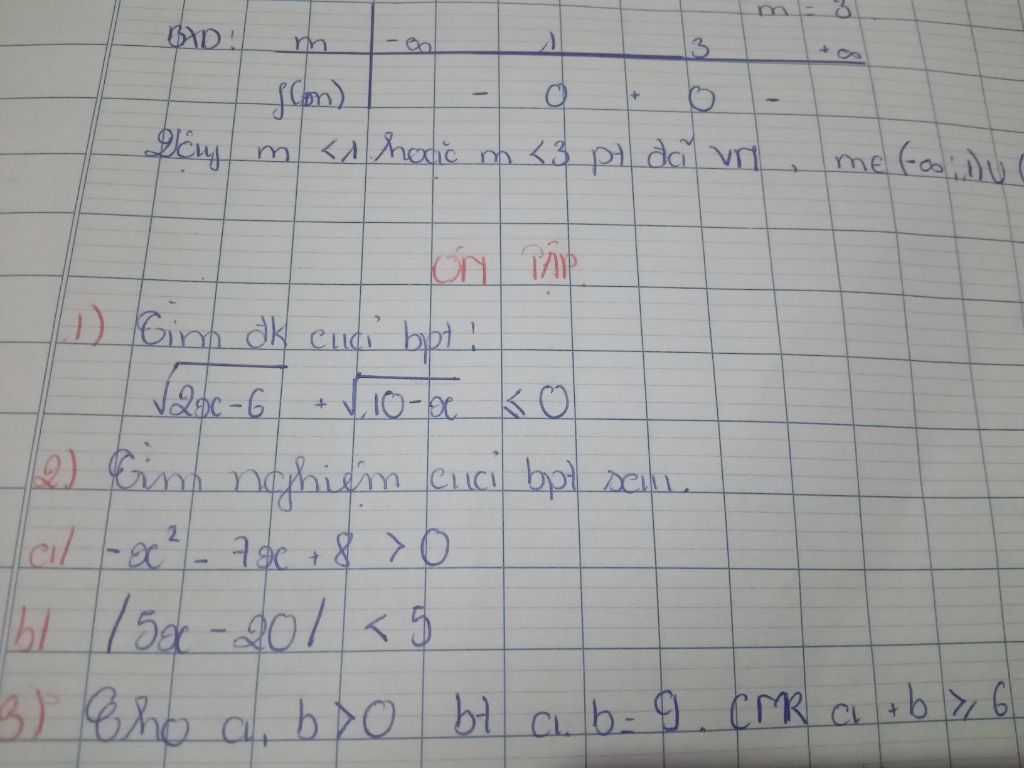 m = 3
BXD: m -∞ 1 3 +∞
f(m) - 0 + 0 -
Vậy m < 1 hoặc m < 3 pt đã VN, m ∈ (-∞; 1) ∪ (
ÔN TẬP
1) Tìm đk của bpt:
√2x-6 + √10-x ≤ 0
2) Tìm nghiệm của bpt sau.
a/ -x² - 7x + 8 > 0
b/ |5x - 20| < 5
3) Cho a, b > 0 bt a.b = 9. CMR a + b ≥ 6